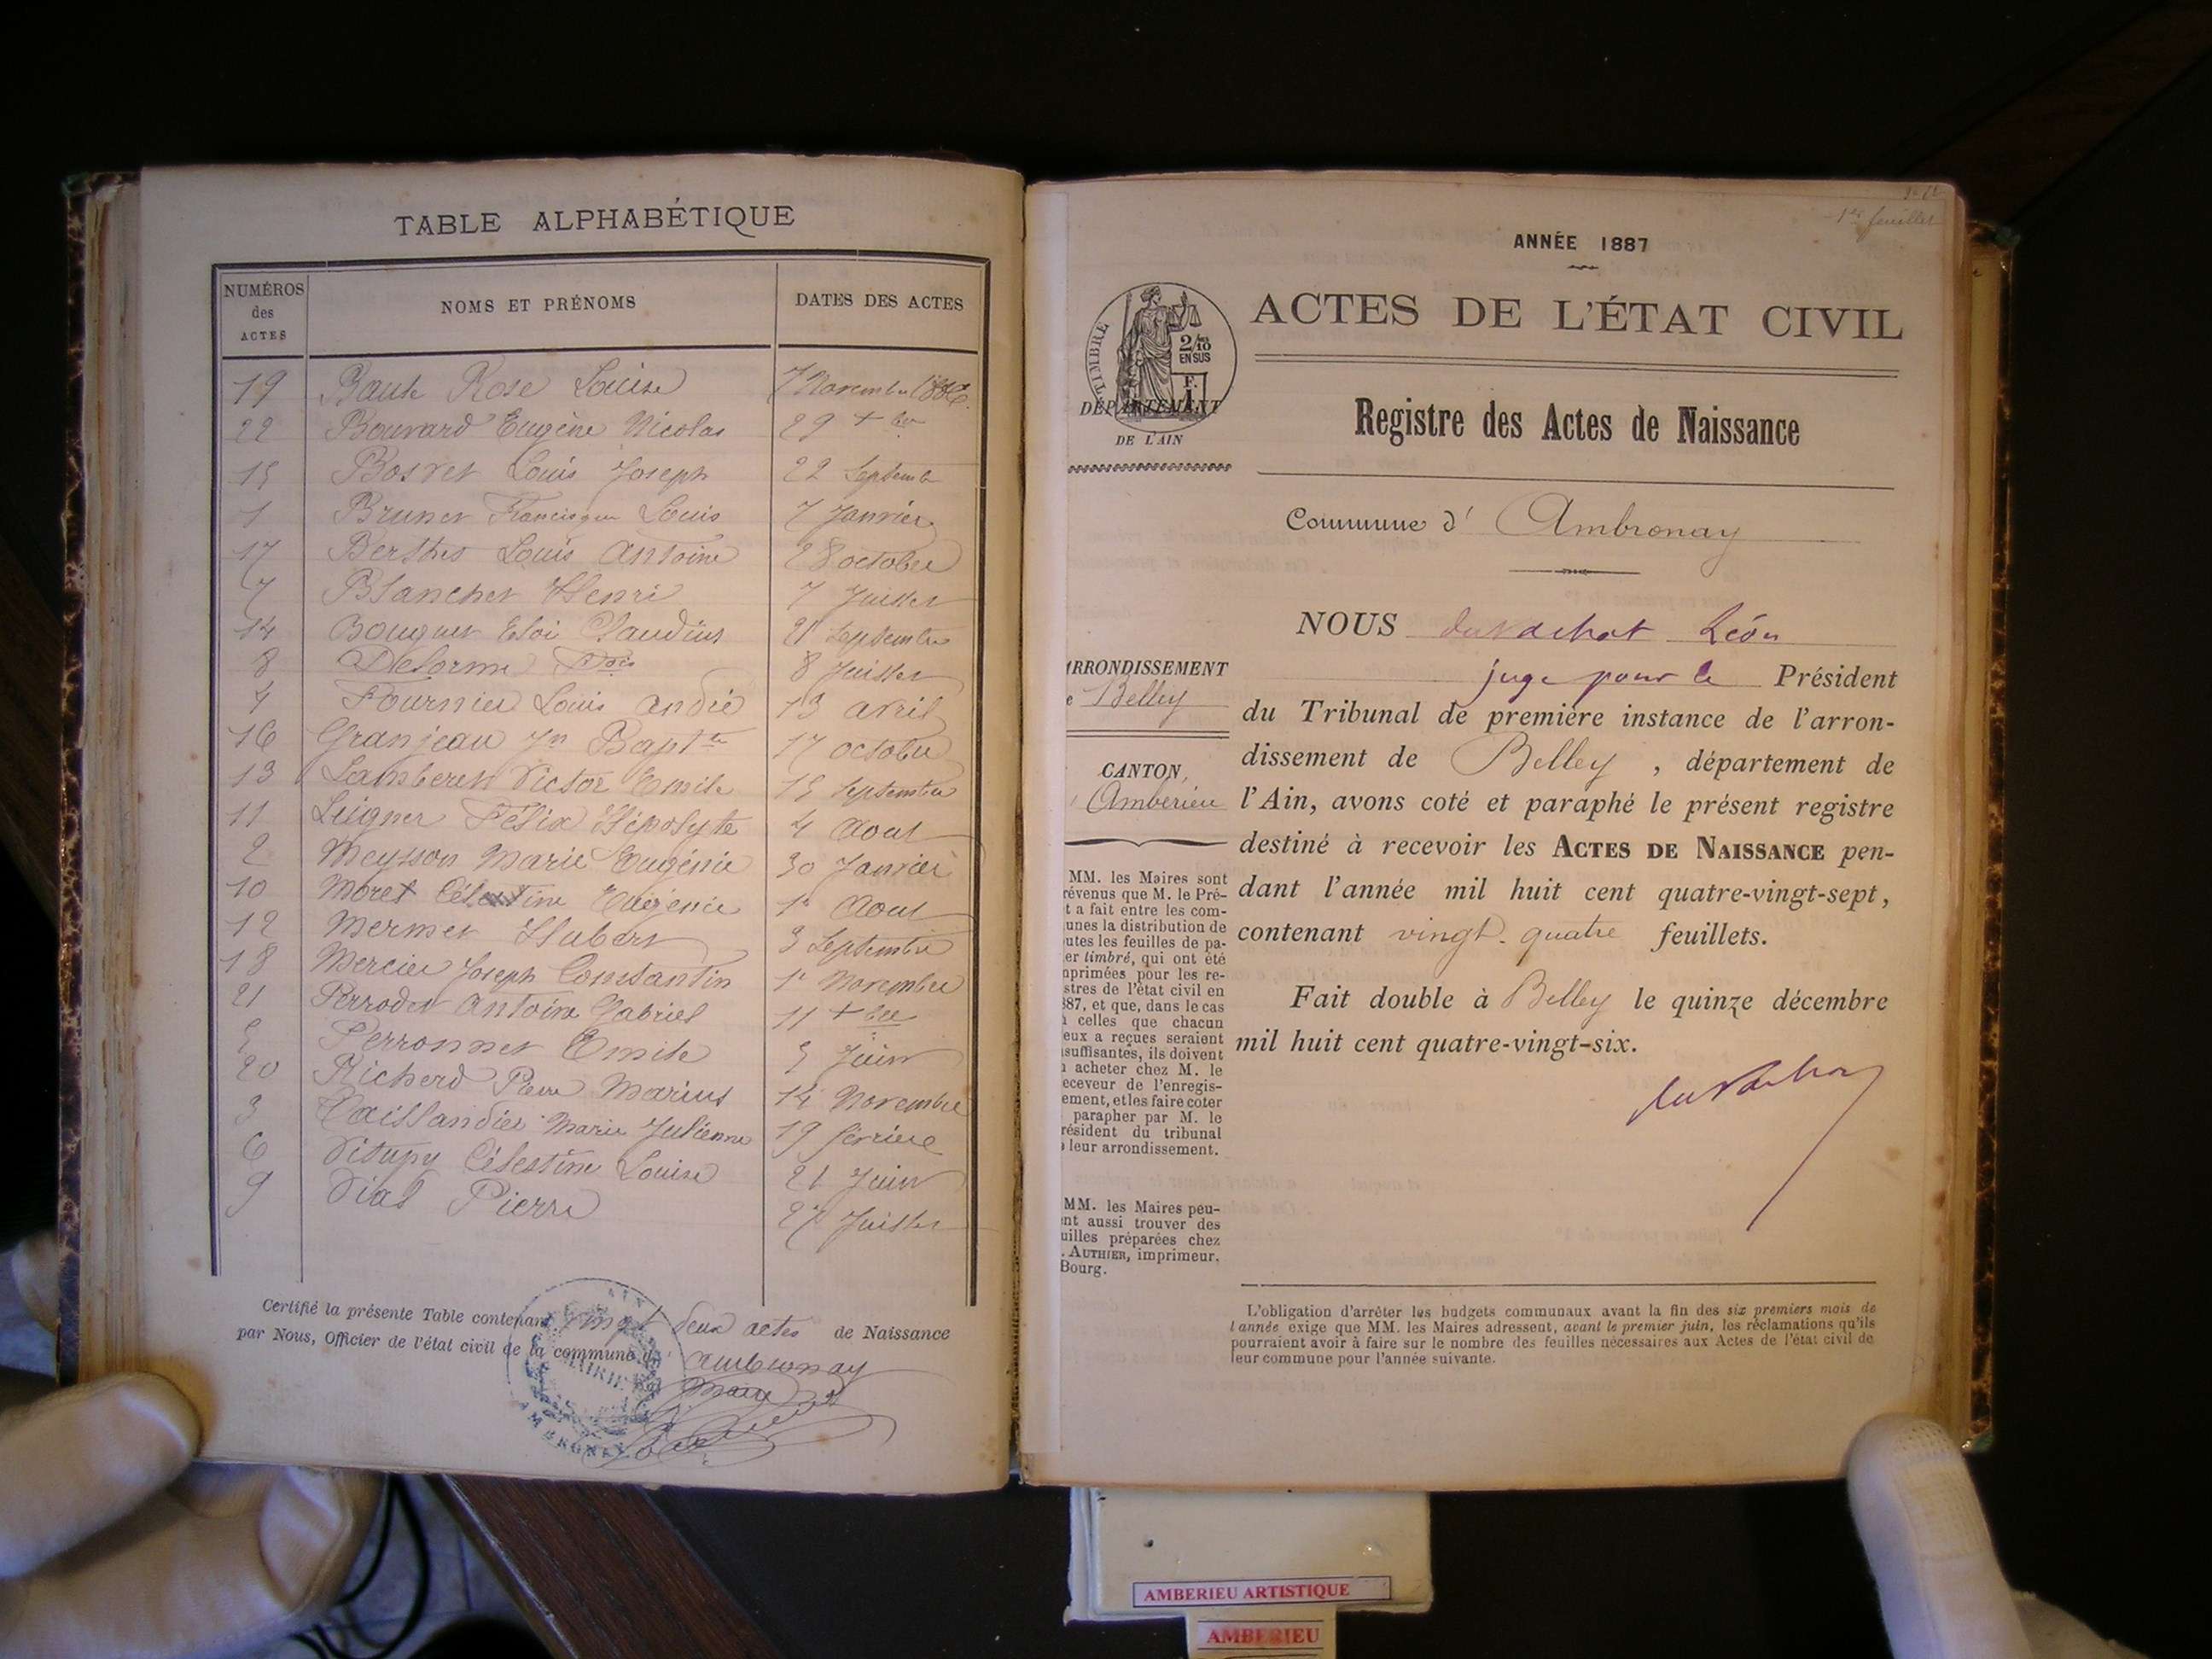 TABLE ALPHABÉTIQUE
NUMÉROS
des
ACTES
NOMS ET PRÉNOMS
DATES DES ACTES
19 Baute Rose Louise 7 Novembre 1886
22 Bouvard Eugène Nicolas 29 + bre
15 Bosset Louis Joseph 22 Septemb
1 Brunet Francisque Louis 7 Janvier
17 Berthet Louis Antoine 28 octobre
7 Blanchet Henri 7 Juillet
14 Bouquet Eloi Claudius 21 Septembre
8 Delorme 8 Juillet
4 Fournier Louis André 13 avril
16 Granjeau Jn Bapte 17 octobre
13 Lamberet Victor Emile 15 Septembre
11 Félix Hépolyte 4 Aout
2 Meysson Marie Eugénie 30 Janvier
10 Moret Célestine 1r Aout
12 Mermet Hubert 3 Septembre
18 Mercier Joseph Constantin 1r Novembre
21 Perrodet Antoine Gabriel 11 + bre
5 Perronnet Emile 5 Juin
20 Richerd Pierre Marius 14 Novembre
3 Taillandier Marie Julienne 19 février
6 Vitupy Célestine Louise 21 Juin
9 Vial Pierre 27 Juillet
Certifié la présente Table contenant vingt deux actes de Naissance
par Nous, Officier de l'état civil de la commune d' ambronay
Maire
MAIRIE
1er feuillet
ANNÉE 1887
TIMBRE
2/10
EN SUS
F.
1
DÉPARTEMENT
DE L'AIN
ACTES DE L'ÉTAT CIVIL
Registre des Actes de Naissance
Commune d' Ambronay
NOUS Léon
juge pour le Président
du Tribunal de première instance de l'arron-
dissement de Belley , département de
l'Ain, avons coté et paraphé le présent registre
destiné à recevoir les ACTES DE NAISSANCE pen-
dant l'année mil huit cent quatre-vingt-sept,
contenant vingt-quatre feuillets.
Fait double à Belley le quinze décembre
mil huit cent quatre-vingt-six.
ARRONDISSEMENT
e Belley
CANTON
Amberieu
MM. les Maires sont
révenus que M. le Pré-
t a fait entre les com-
unes la distribution de
utes les feuilles de pa-
er timbré, qui ont été
mprimées pour les re-
stres de l'état civil en
887, et que, dans le cas
celles que chacun
eux a reçues seraient
suffisantes, ils doivent
acheter chez M. le
eceveur de l'enregis-
ement, et les faire coter
parapher par M. le
résident du tribunal
leur arrondissement.
MM. les Maires peu-
nt aussi trouver des
uilles préparées chez
. AUTHIER, imprimeur,
Bourg.
L'obligation d'arrêter les budgets communaux avant la fin des six premiers mois de
l'année exige que MM. les Maires adressent, avant le premier juin, les réclamations qu'ils
pourraient avoir à faire sur le nombre des feuilles nécessaires aux Actes de l'état civil de
leur commune pour l'année suivante.
AMBERIEU ARTISTIQUE
AMBERIEU